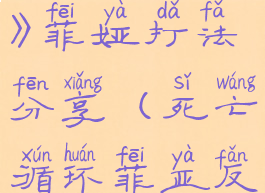 fēi yà dǎ fǎ
》菲娅打法
fēn xiǎng sǐ wáng
分享（死亡
xún huán fēi yà fǎn
循环菲亚反